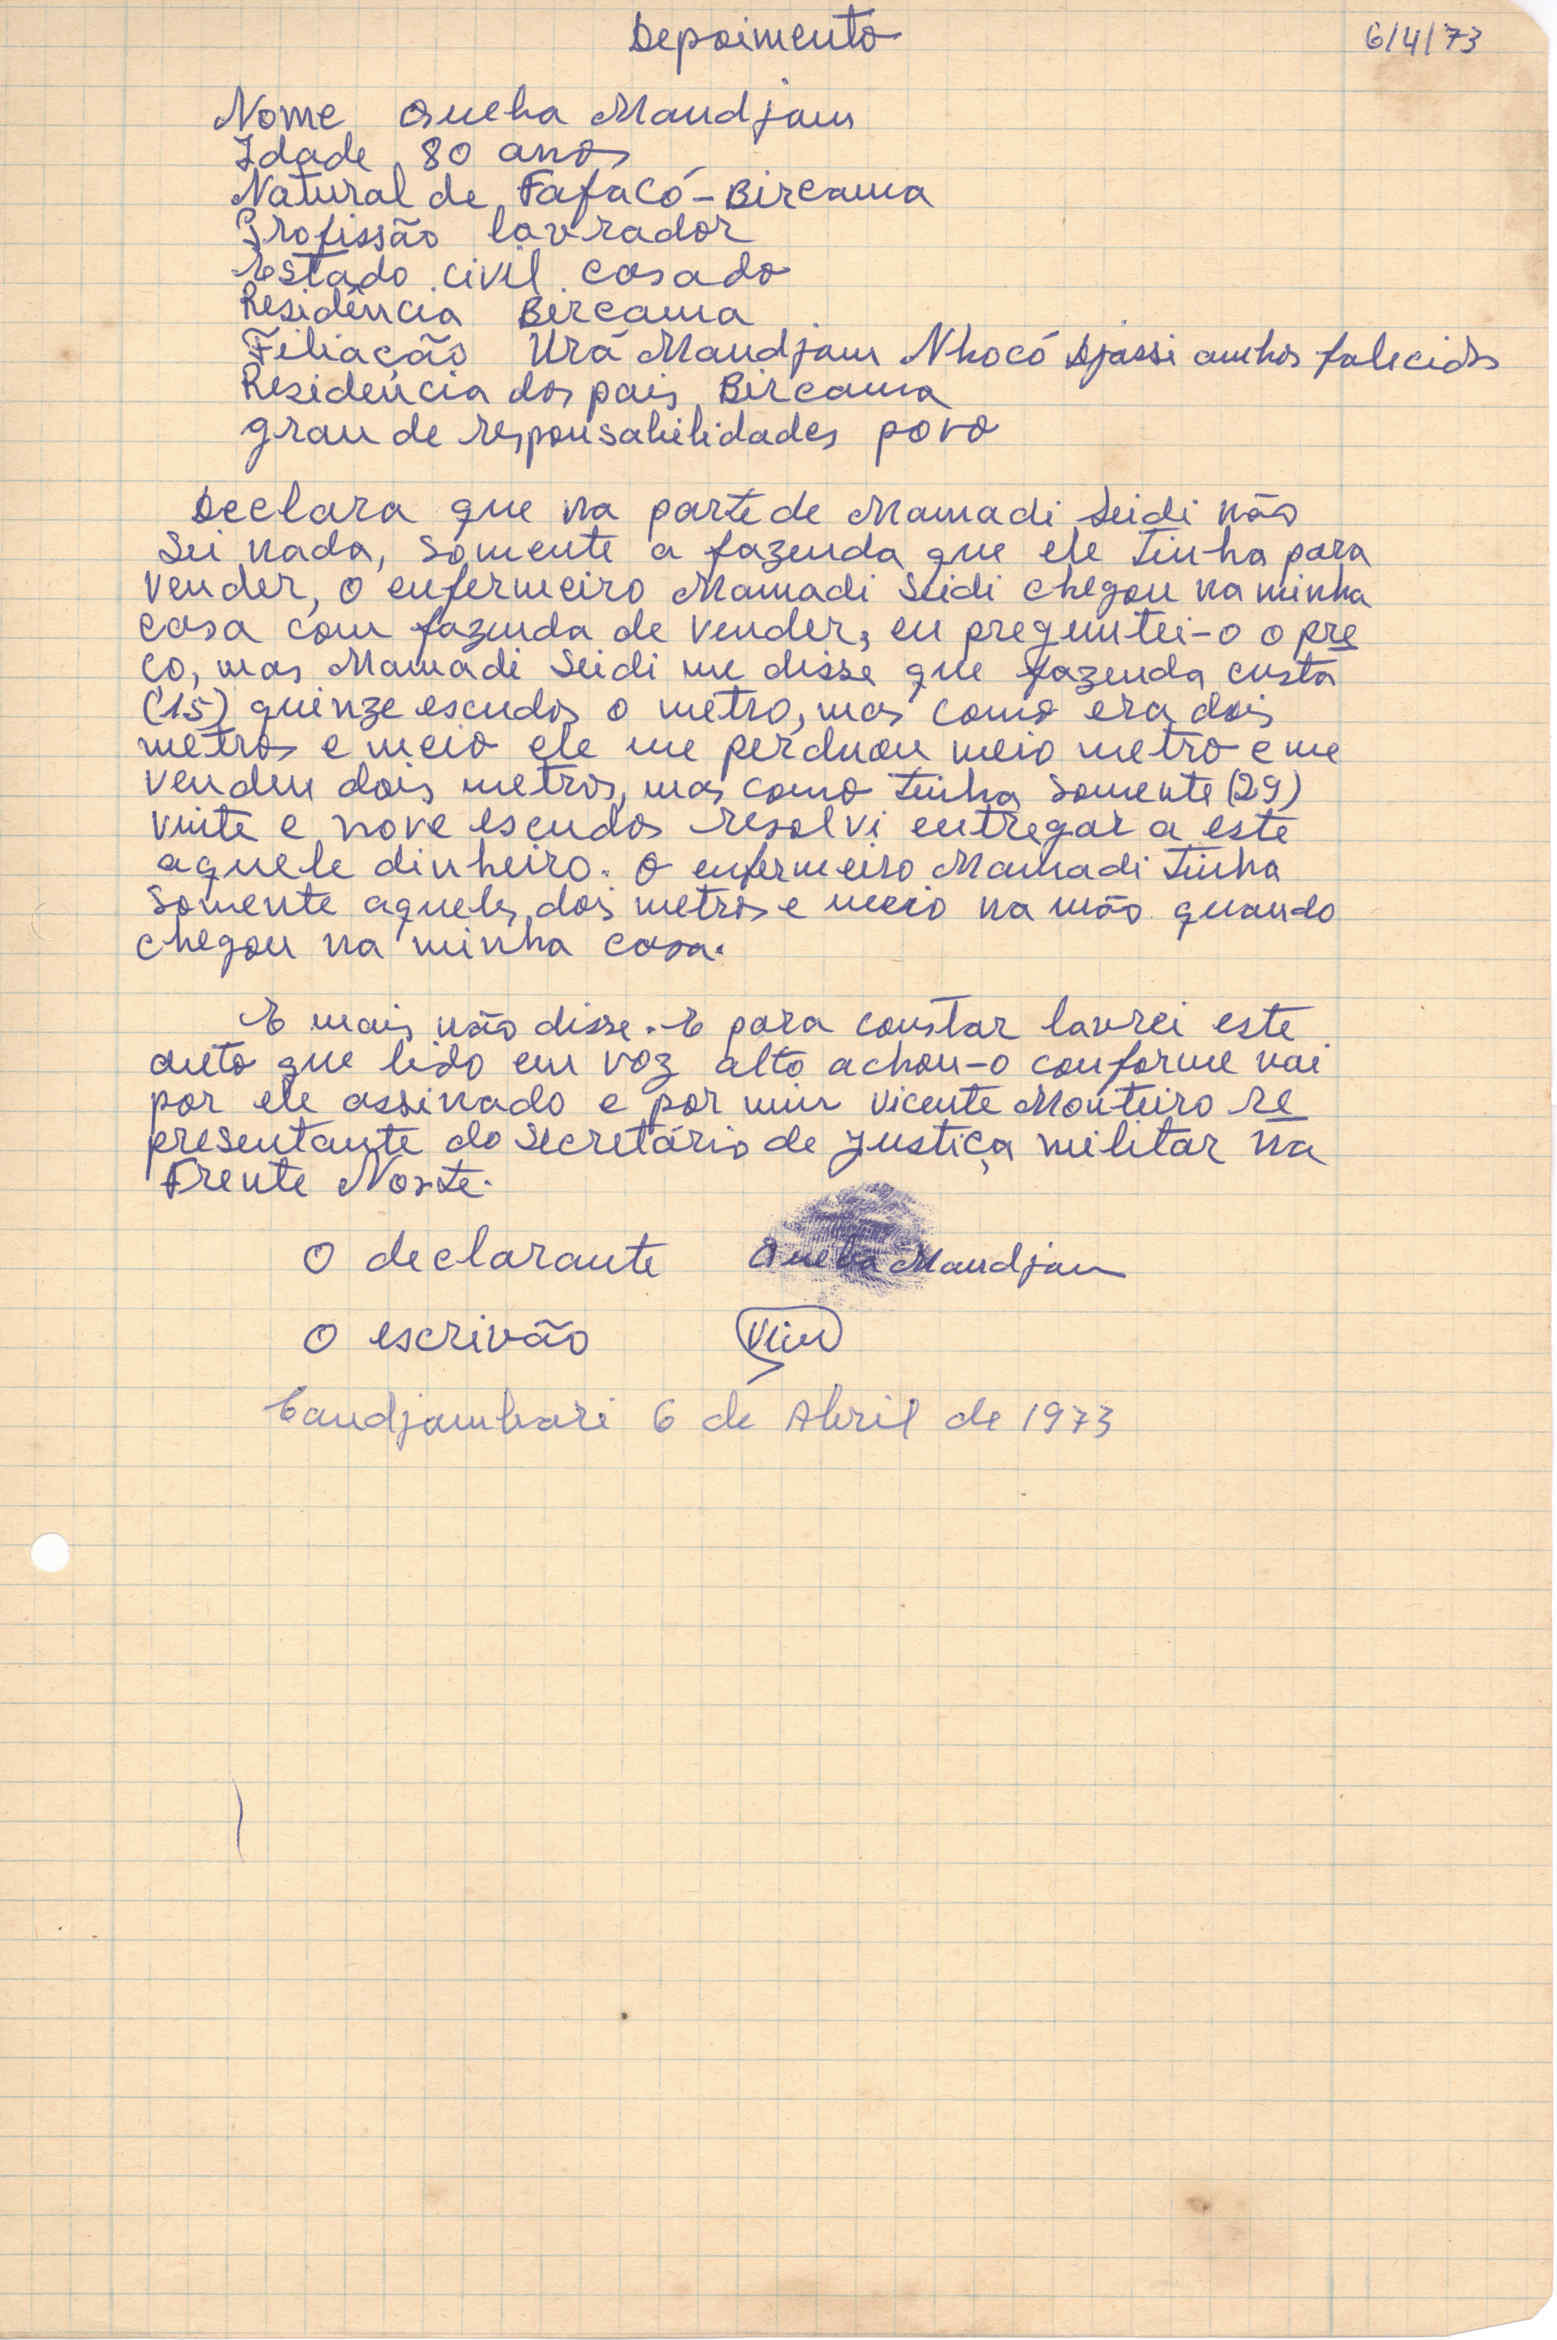 Depoimento
6/4/73
Nome Queba Mandjam
Idade 80 anos
Natural de Fafacó - Bircama
Profissão lavrador
Estado civil casado
Residência Bircama
Filiação Urá Mandjam Nhocó Djassi ambos falecidos
Residência dos pais Bircama
grau de responsabilidades povo
Declara que na parte de Mamadi Seidi não
sei nada, sómente a fazenda que ele tinha para
vender, o enfermeiro Mamadi Seidi chegou na minha
casa com fazenda de vender, eu preguntei-o o pre
ço, mas Mamadi Seidi me disse que fazenda custa
(15) quinze escudos o metro, mas como era dois
metros e meio ele me perduou meio metro e me
vendeu dois metros, mas como tinha somente (29)
vinte e nove escudos resolvi entregar a este
aquele dinheiro. O enfermeiro Mamadi tinha
somente aqueles dois metros e meio na mão quando
chegou na minha casa.
E mais não disse. E para constar lavrei este
auto que lido em voz alto achou-o conforme vai
por ele assinado e por mim Vicente Monteiro re
presentante do Secretário de Justiça militar na
Frente Norte.
O declarante Queba Mandjam
O escrivão
Candjambari 6 de Abril de 1973